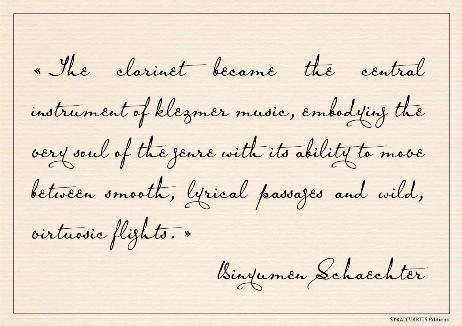 « The clarinet became the central
instrument of klezmer music, embodying the
very soul of the genre with its ability to move
between smooth, lyrical passages and wild,
virtuosic flights. »
Binyumen Schaechter
STRADIVARIUS Editions